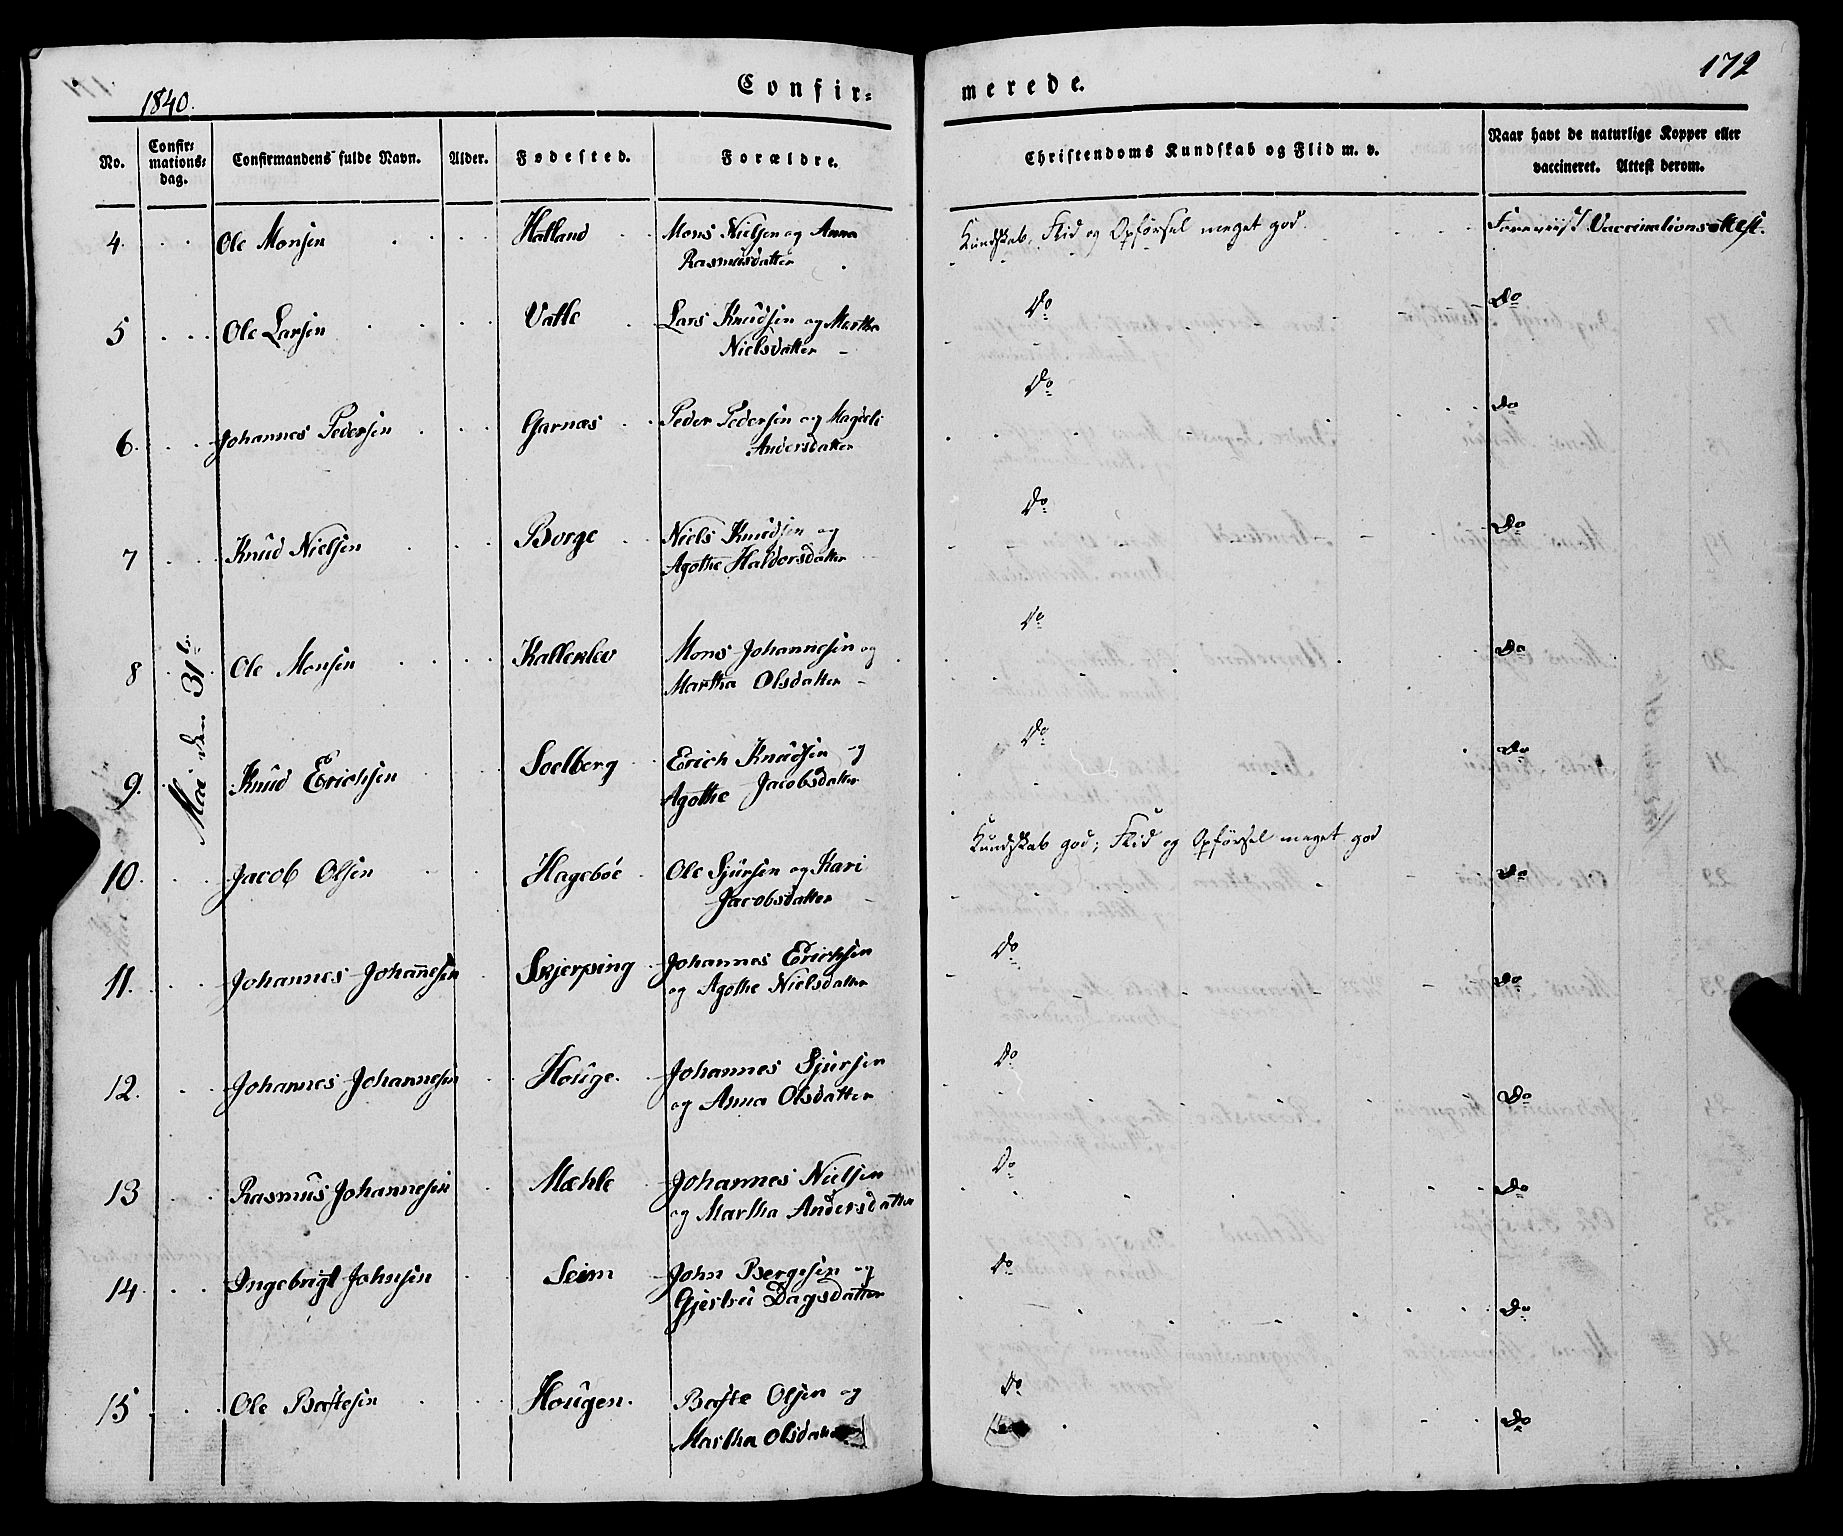 1840.
Confir=
merede.
172
No.
Confir=
mations=
dag.
Confirmandens fulde Navn.
Alder.
Fødested.
Forældre.
Christendoms Kundskab og Flid m. v.
Naar havt de naturlige Kopper eller
vaccineret. Attest derom.
Mai den 31te
4. Ole Monsen Hatland Mons Nielsen og Anna Kundskab, Flid og Opførsel meget god. Foreviist Vaccinationsattest.
Rasmusdatter
5 Ole Larsen Valle Lars Knudsen og Martha Do Do
Nielsdatter
6. Johannes Pedersen Garnæs Peder Pedersen og Magdeli Do Do
Andersdatter
7 Knud Nielsen Borge Niels Knudsen og Do Do
Agothe Haldorsdatter
8 Ole Monsen Kalleklev Mons Johannesen og Do Do
Martha Olsdatter
9. Knud Erichsen Soelberg Erich Knudsen og Do Do
Agothe Jacobsdatter
10. Jacob Olsen Hagebøe Ole Sjursen og Kari Kundskab god; Flid og Opførsel meget god Do
Jacobsdatter
11. Johannes Johannesen Skjerping Johannes Erichsen Do Do
og Agothe Nielsdatter
12. Johannes Johannesen Houge. Johannes Sjursen Do Do
og Anna Olsdatter
13 Rasmus Johannesen Mæhle Johannes Nielsen Do Do
og Martha Andersdatter
14. Ingebrigt Johnsen Seim John Bergesen og Do Do
Gjertrei Dagsdatter
15 Ole Bastesen Hougen. Baste Olsen og Do Do
Martha Olsdatter